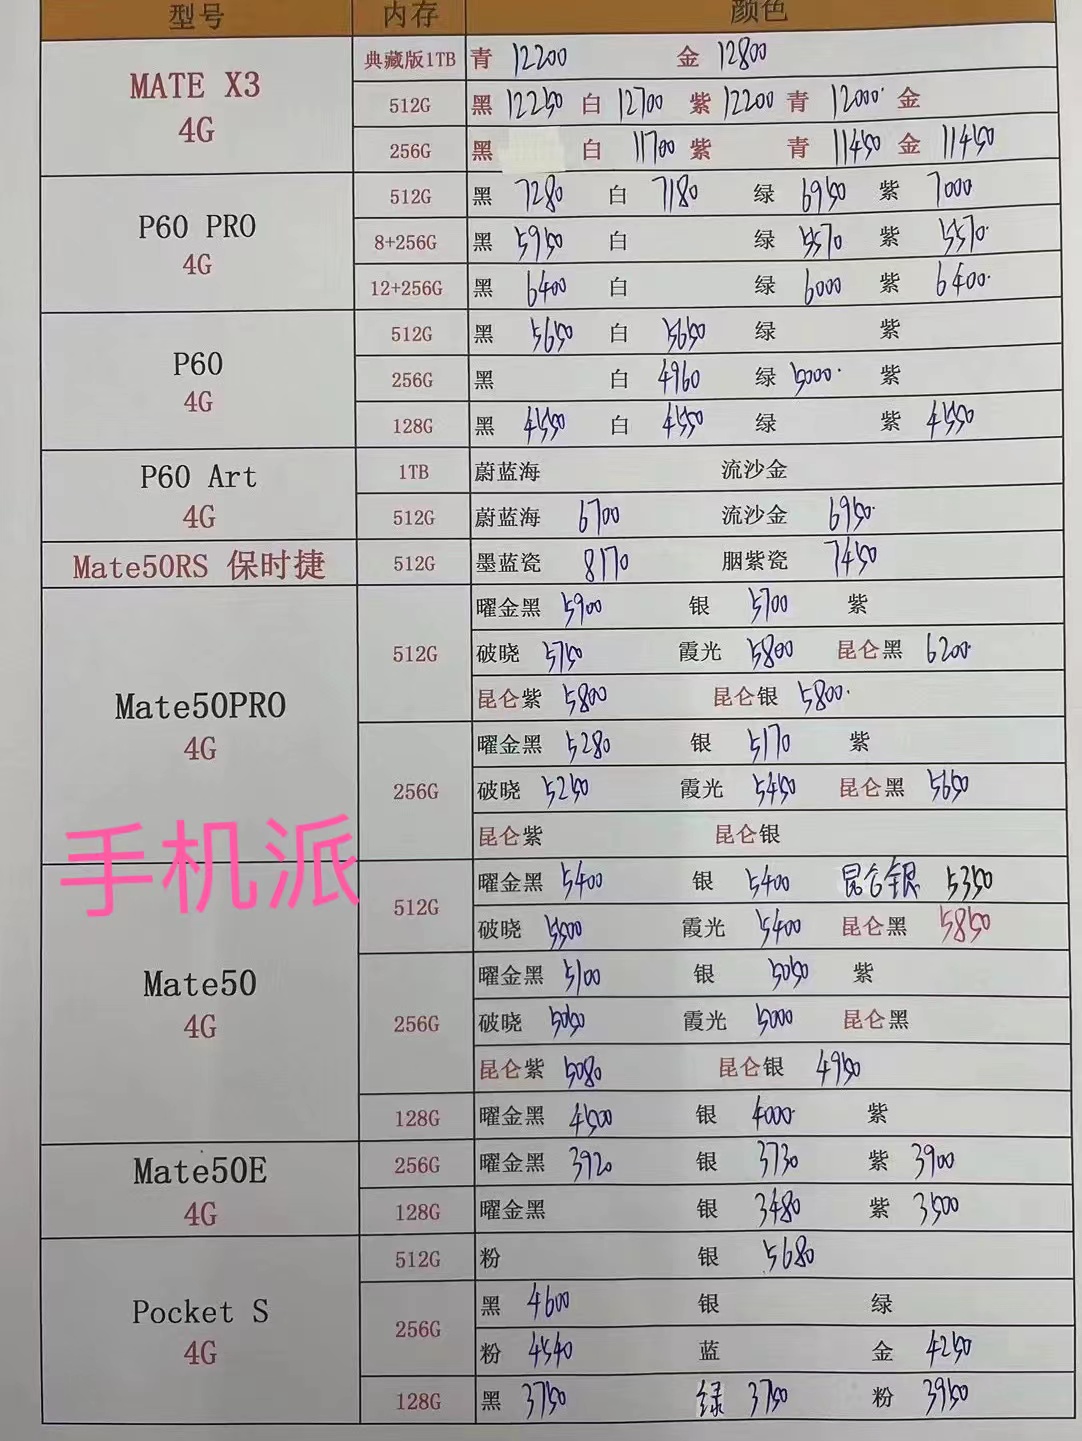 型号 内存 颜色
MATE X3 4G 典藏版1TB 青 12200 金 12800
512G 黑 12250 白 12700 紫 12200 青 12000 金
256G 黑 白 11700 紫 青 11450 金 11450
P60 PRO 4G 512G 黑 7280 白 7180 绿 6950 紫 7000
8+256G 黑 5950 白 绿 5570 紫 5570
12+256G 黑 6400 白 绿 6000 紫 6400
P60 4G 512G 黑 5650 白 5650 绿 紫
256G 黑 白 4960 绿 5000 紫
128G 黑 4550 白 4550 绿 紫 4550
P60 Art 4G 1TB 蔚蓝海 流沙金
512G 蔚蓝海 6700 流沙金 6950
Mate50RS 保时捷 512G 墨蓝瓷 8170 胭紫瓷 7450
Mate50PRO 4G 512G 曜金黑 5900 银 5700 紫
破晓 5750 霞光 5800 昆仑黑 6200
昆仑紫 5800 昆仑银 5800
256G 曜金黑 5280 银 5170 紫
破晓 5250 霞光 5450 昆仑黑 5650
昆仑紫 昆仑银
手机派
Mate50 4G 512G 曜金黑 5400 银 5400 昆仑银 5350
破晓 5500 霞光 5400 昆仑黑 5850
256G 曜金黑 5100 银 5050 紫
破晓 5050 霞光 5000 昆仑黑
昆仑紫 5080 昆仑银 4950
128G 曜金黑 4500 银 4000 紫
Mate50E 4G 256G 曜金黑 3920 银 3730 紫 3900
128G 曜金黑 银 3480 紫 3500
Pocket S 4G 512G 粉 银 5680
256G 黑 4600 银 绿
粉 4540 蓝 金 4250
128G 黑 3750 绿 3750 粉 3950